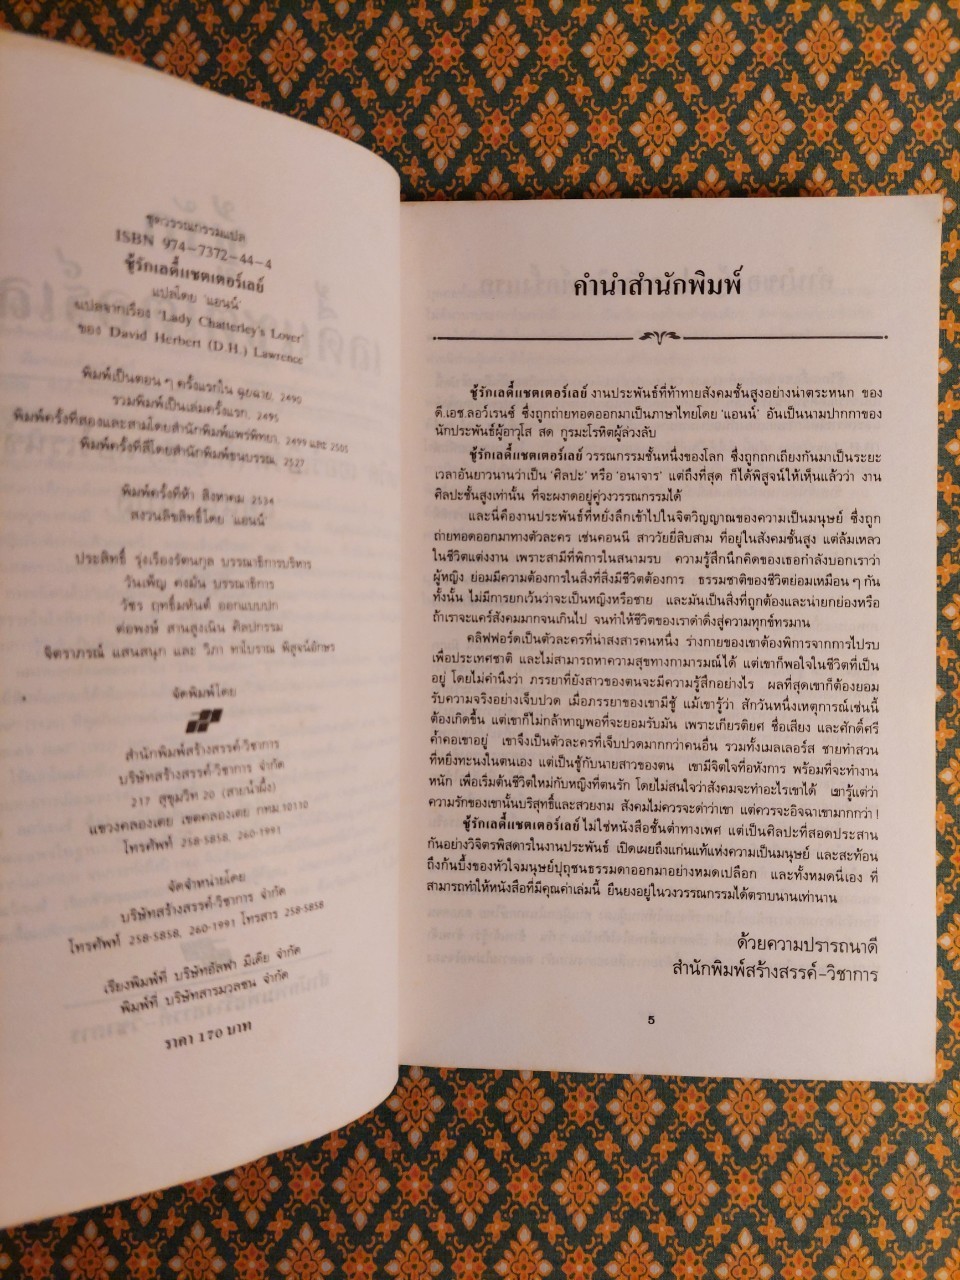 ชุดวรรณกรรมแปล
ISBN 974-7372-44-4
ชู้รักเลดี้แชตเตอร์เลย์
แปลโดย 'แอนน์'
แปลจากเรื่อง 'Lady Chatterley's Lover'
ของ David Herbert (D.H.) Lawrence
พิมพ์เป็นตอน ๆ ครั้งแรกใน ฉุยฉาย, 2490
รวมพิมพ์เป็นเล่มครั้งแรก, 2495
พิมพ์ครั้งที่สองและสามโดยสำนักพิมพ์แพร่พิทยา, 2499 และ 2505
พิมพ์ครั้งที่สี่โดยสำนักพิมพ์ชนบรรณ, 2527
พิมพ์ครั้งที่ห้า สิงหาคม 2534
สงวนลิขสิทธิ์โดย 'แอนน์'
ประสิทธิ์ รุ่งเรืองรัตนกุล บรรณาธิการบริหาร
วันเพ็ญ คงมั่น บรรณาธิการ
วัชร ฤทธิ์มหันต์ ออกแบบปก
ต่อพงษ์ สานสูงเนิน ศิลปกรรม
จิตราภรณ์ แสนสนุก และ วิภา ทาโบราณ พิสูจน์อักษร
จัดพิมพ์โดย
สำนักพิมพ์สร้างสรรค์-วิชาการ
บริษัทสร้างสรรค์-วิชาการ จำกัด
217 สุขุมวิท 20 (สายน้ำผึ้ง)
แขวงคลองเตย เขตคลองเตย กทม. 10110
โทรศัพท์ 258-5858, 260-1991
จัดจำหน่ายโดย
บริษัทสร้างสรรค์-วิชาการ จำกัด
โทรศัพท์ 258-5858, 260-1991 โทรสาร 258-5858
เรียงพิมพ์ที่ บริษัทอัลฟา มีเดีย จำกัด
พิมพ์ที่ บริษัทสารมวลชน จำกัด
ราคา 170 บาท
คำนำสำนักพิมพ์
ชู้รักเลดี้แชตเตอร์เลย์ งานประพันธ์ที่ท้าทายสังคมชั้นสูงอย่างน่าตระหนก ของ
ดี.เอช.ลอว์เรนซ์ ซึ่งถูกถ่ายทอดออกมาเป็นภาษาไทยโดย 'แอนน์' อันเป็นนามปากกาของ
นักประพันธ์ผู้อาวุโส สด กูรมะโรหิตผู้ล่วงลับ
ชู้รักเลดี้แชตเตอร์เลย์ วรรณกรรมชั้นหนึ่งของโลก ซึ่งถูกถกเถียงกันมาเป็นระยะ
เวลาอันยาวนานว่าเป็น 'ศิลปะ' หรือ 'อนาจาร' แต่ถึงที่สุด ก็ได้พิสูจน์ให้เห็นแล้วว่า งาน
ศิลปะชั้นสูงเท่านั้น ที่จะผงาดอยู่คู่วงวรรณกรรมได้
และนี่คืองานประพันธ์ที่หยั่งลึกเข้าไปในจิตวิญญาณของความเป็นมนุษย์ ซึ่งถูก
ถ่ายทอดออกมาทางตัวละคร เช่นคอนนี่ สาววัยยี่สิบสาม ที่อยู่ในสังคมชั้นสูง แต่ล้มเหลว
ในชีวิตแต่งงาน เพราะสามีที่พิการในสนามรบ ความรู้สึกนึกคิดของเธอกำลังบอกเราว่า
ผู้หญิง ย่อมมีความต้องการในสิ่งที่สิ่งมีชีวิตต้องการ ธรรมชาติของชีวิตย่อมเหมือน ๆ กัน
ทั้งนั้น ไม่มีการยกเว้นว่าจะเป็นหญิงหรือชาย และมันเป็นสิ่งที่ถูกต้องและน่ายกย่องหรือ
ถ้าเราจะแคร์สังคมมากจนเกินไป จนทำให้ชีวิตของเราดำดิ่งสู่ความทุกข์ทรมาน
คลิฟฟอร์ดเป็นตัวละครที่น่าสงสารคนหนึ่ง ร่างกายของเขาต้องพิการจากการไปรบ
เพื่อประเทศชาติ และไม่สามารถหาความสุขทางกามารมณ์ได้ แต่เขาก็พอใจในชีวิตที่เป็น
อยู่ โดยไม่คำนึงว่า ภรรยาที่ยังสาวของตนจะมีความรู้สึกอย่างไร ผลที่สุดเขาก็ต้องยอม
รับความจริงอย่างเจ็บปวด เมื่อภรรยาของเขามีชู้ แม้เขารู้ว่า สักวันหนึ่งเหตุการณ์เช่นนี้
ต้องเกิดขึ้น แต่เขาก็ไม่กล้าหาญพอที่จะยอมรับมัน เพราะเกียรติยศ ชื่อเสียง และศักดิ์ศรี
ค้ำคอเขาอยู่ เขาจึงเป็นตัวละครที่เจ็บปวดมากกว่าคนอื่น รวมทั้งเมลเลอร์ส ชายทำสวน
ที่หยิ่งทะนงในตนเอง แต่เป็นชู้กับนายสาวของตน เขามีจิตใจที่อหังการ พร้อมที่จะทำงาน
หนัก เพื่อเริ่มต้นชีวิตใหม่กับหญิงที่ตนรัก โดยไม่สนใจว่าสังคมจะทำอะไรเขาได้ เขารู้แต่ว่า
ความรักของเขานั้นบริสุทธิ์และสวยงาม สังคมไม่ควรจะด่าว่าเขา แต่ควรจะอิจฉาเขามากกว่า !
ชู้รักเลดี้แชตเตอร์เลย์ ไม่ใช่หนังสือชั้นต่ำทางเพศ แต่เป็นศิลปะที่สอดประสาน
กันอย่างวิจิตรพิสดารในงานประพันธ์ เปิดเผยถึงแก่นแท้แห่งความเป็นมนุษย์ และสะท้อน
ถึงก้นบึ้งของหัวใจมนุษย์ปุถุชนธรรมดาออกมาอย่างหมดเปลือก และทั้งหมดนี่เอง ที่
สามารถทำให้หนังสือที่มีคุณค่าเล่มนี้ ยืนยงอยู่ในวงวรรณกรรมได้ตราบนานเท่านาน
ด้วยความปรารถนาดี
สำนักพิมพ์สร้างสรรค์-วิชาการ
5